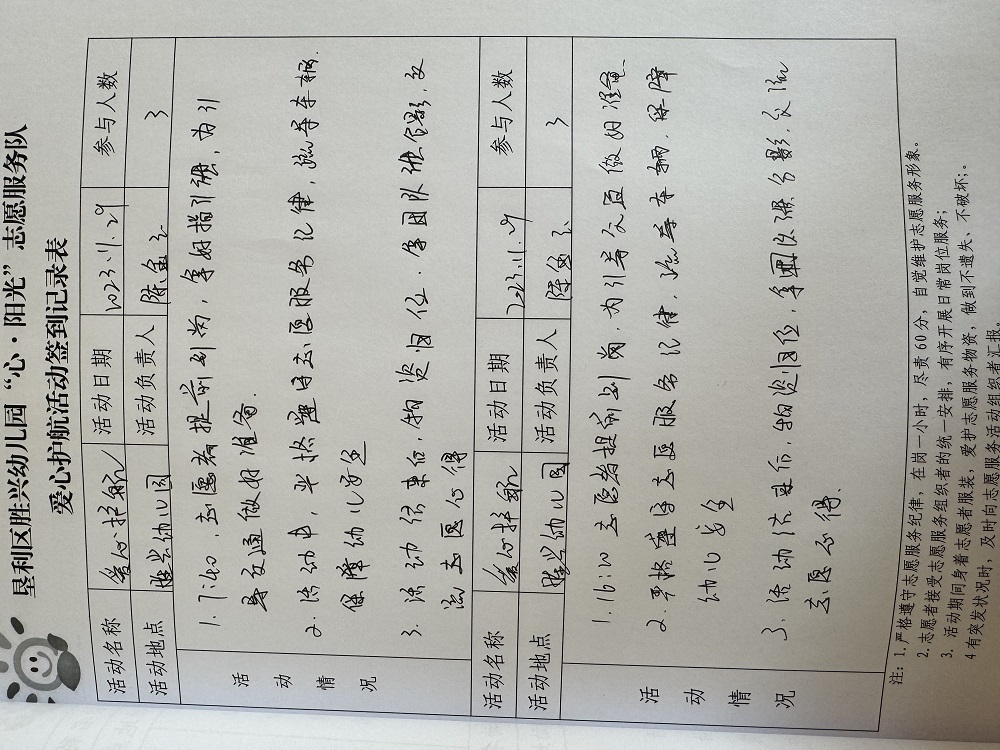 垦利区胜兴幼儿园“心·阳光”志愿服务队
爱心护航活动签到记录表
活动名称 爱心护航 活动日期 2023.11.29 参与人数
活动地点 胜兴幼儿园 活动负责人 陈 3
活动情况
1. 7:40,志愿者提前到岗,拿好指引牌,为引
导交通做好准备.
2. 活动中,严格遵守志愿服务纪律,疏导车辆.
保障幼儿安全
3. 活动结束后,物资归位.拿团队牌合影,交
流志愿心得
活动名称 爱心护航 活动日期 2023.11.29 参与人数
活动地点 胜兴幼儿园 活动负责人 陈 3
活动情况
1. 16:10 志愿者提前到岗.为引导交通做好准备.
2. 严格遵守志愿服务纪律,疏导车辆.保障
幼儿安全
3. 活动结束后,物资归位,拿团队牌合影,交流
志愿心得.
注:1.严格遵守志愿服务纪律,在岗一小时,尽责60分,自觉维护志愿服务形象。
2.志愿者接受志愿服务组织者的统一安排,有序开展日常岗位服务;
3. 活动期间身着志愿者服装,爱护志愿服务物资,做到不遗失、不破坏;。
4 有突发状况时,及时向志愿服务活动组织者汇报